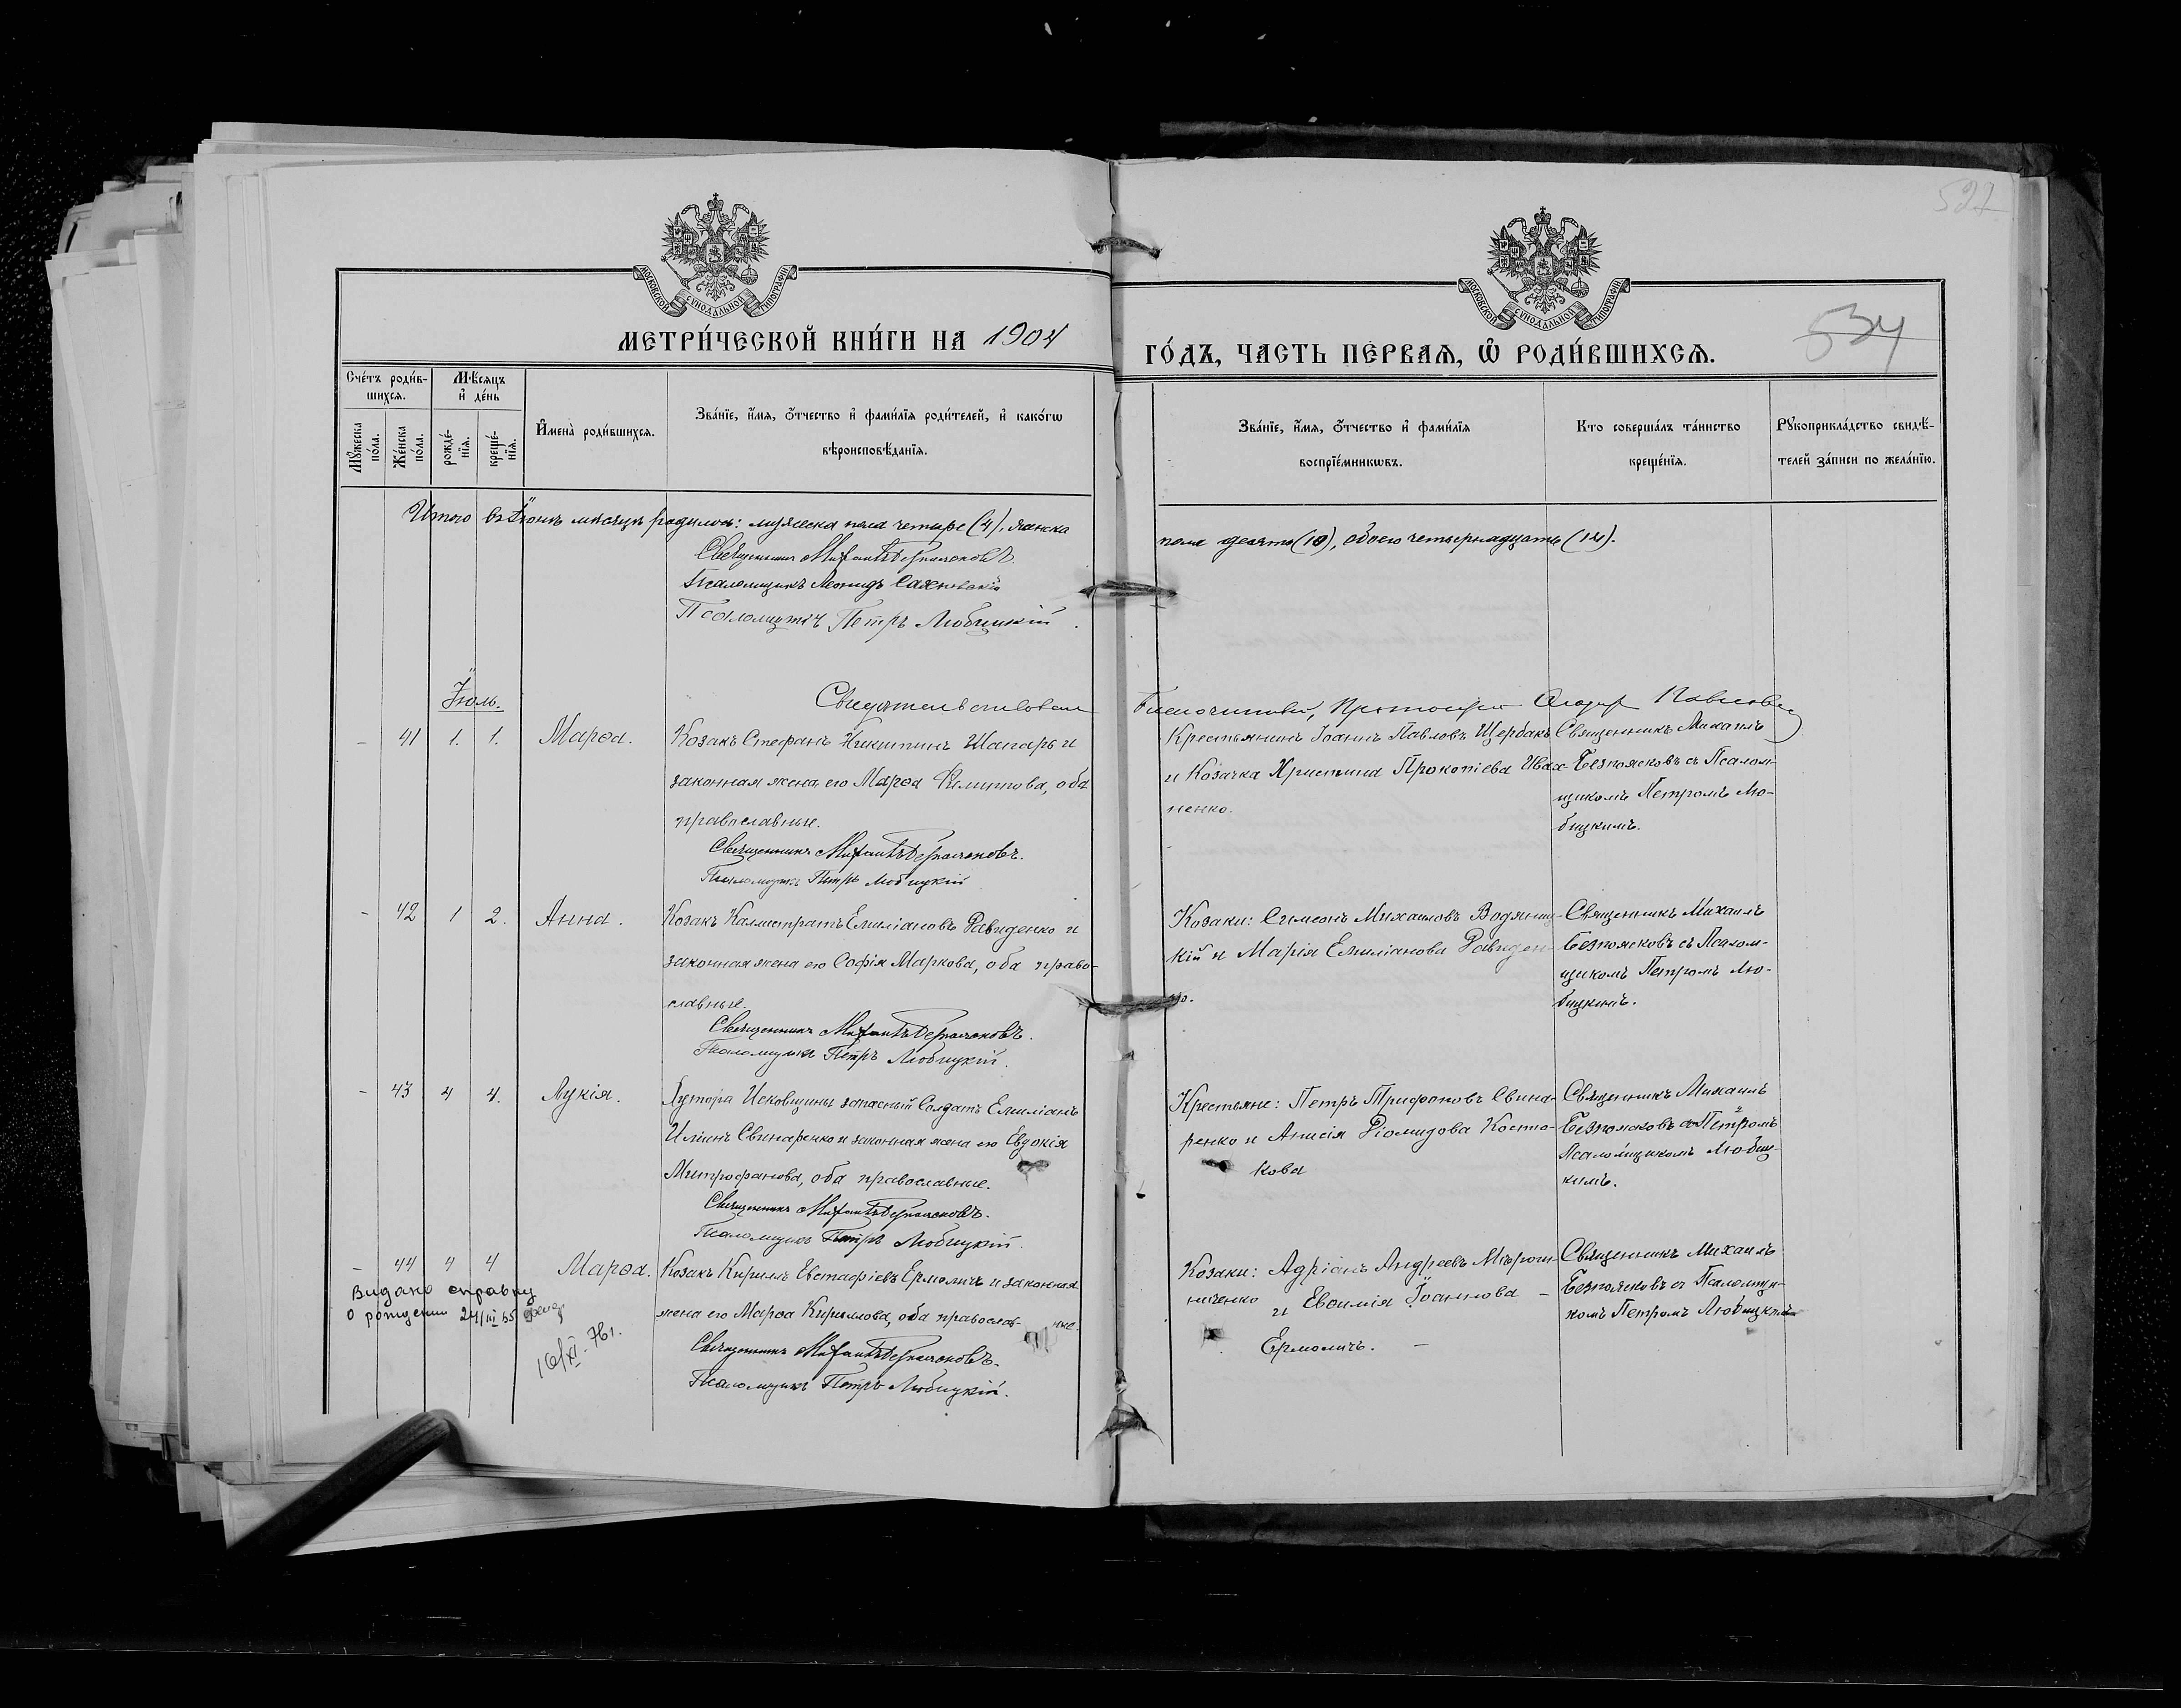 527
534
МОСКОВСКОЙ СУНОДАЛЬНОЙ ТИПОГРАФІИ
МОСКОВСКОЙ СУНОДАЛЬНОЙ ТИПОГРАФІИ
МЕТРИ́ЧЕСКОЙ КНИ́ГИ НА 1904
ГО́ДЪ, ЧАСТЬ ПЕ́РВАЯ, Ѿ РОДИ́ВШИХСЯ.
Сче́тъ роди́в-
шихся.
Мѣ́сяцъ
и҆ де́нь
Мꙋ́жеска
по́ла.
Же́нска
по́ла.
рожде́-
нїя.
креще́-
нїя.
И҆мена̀ роди́вшихся.
Зва́нїе, и҆́мя, ѻ҆́тчество и҆ фами́лїя роди́телей, и҆ како́гѡ
вѣроисповѣ́данїя.
Зва́нїе, и҆́мя, ѻ҆́тчество и҆ фами́лїя
воспрїе́мникѡвъ.
Кто соверша́лъ та́инство
креще́нїя.
Рꙋкоприкла́дство свидѣ́-
телей за́писи по жела́нїю.
Итого въ Іюнѣ мѣсяцѣ родилось: мужеска пола четыре (4), женска
пола десять (10), обоего четырнадцать (14).
Священникъ Михаилъ Безпоясковъ.
Псаломщикъ Леонидъ
Псаломщикъ Петръ Любицкій.
Іюль.
Свидетельствовал
Благочинный, Протоіерей Павловъ
- 41 1. 1. Марѳа.
Козакъ Стефанъ Никитинъ Шапаръ и
законная жена его Марѳа Филиппова, оба
православные.
Священникъ Михаилъ Безпоясковъ.
Псаломщикъ Петръ Любицкій
Крестьянинъ Іоаннъ Павловъ Щербакъ
и Козачка Христина Прокопіева Ивах-
ненко.
Священникъ Михаилъ
Безпоясковъ съ Псалом-
щикомъ Петромъ Лю-
бицкимъ.
- 42 1 2. Анна.
Козакъ Каллистратъ Емиліановъ Давиденко и
законная жена его Софія Маркова, оба право-
славные.
Священникъ Михаилъ Безпоясковъ.
Псаломщикъ Петръ Любицкій.
Козаки: Симеонъ Михаиловъ Водяниц-
кій и Марія Емиліанова Давиден-
ко.
Священникъ Михаилъ
Безпоясковъ съ Псалом-
щикомъ Петромъ Лю-
бицкимъ.
- 43 4 4. Лукія.
Хутора Исковщины запасный Солдатъ Емиліанъ
Иліинъ Свинаренко и законная жена его Евдокія
Митрофанова, оба православные.
Священникъ Михаилъ Безпоясковъ.
Псаломщикъ Петръ Любицкій.
Крестьяне: Петръ Трифоновъ Свина-
ренко и Анисія Діомидова Костю-
кова
Священникъ Михаилъ
Безпоясковъ съ Петромъ
Псаломщикомъ Любиц-
кимъ.
- 44 4 4 Марѳа.
Козакъ Кириллъ Евстафіевъ Ермоличъ и законная
жена его Марѳа Кириллова, оба православ- ные.
Священникъ Михаилъ Безпоясковъ.
Псаломщикъ Петръ Любицкій.
Козаки: Адріанъ Андреевъ Мирош-
ниченко и Евѳимія Іоаннова -
Ермоличъ. -
Священникъ Михаилъ
Безпоясковъ съ Псаломщи-
комъ Петромъ Любицкимъ
Видано справку
о рождении 24/III 55
16/XI-76г.